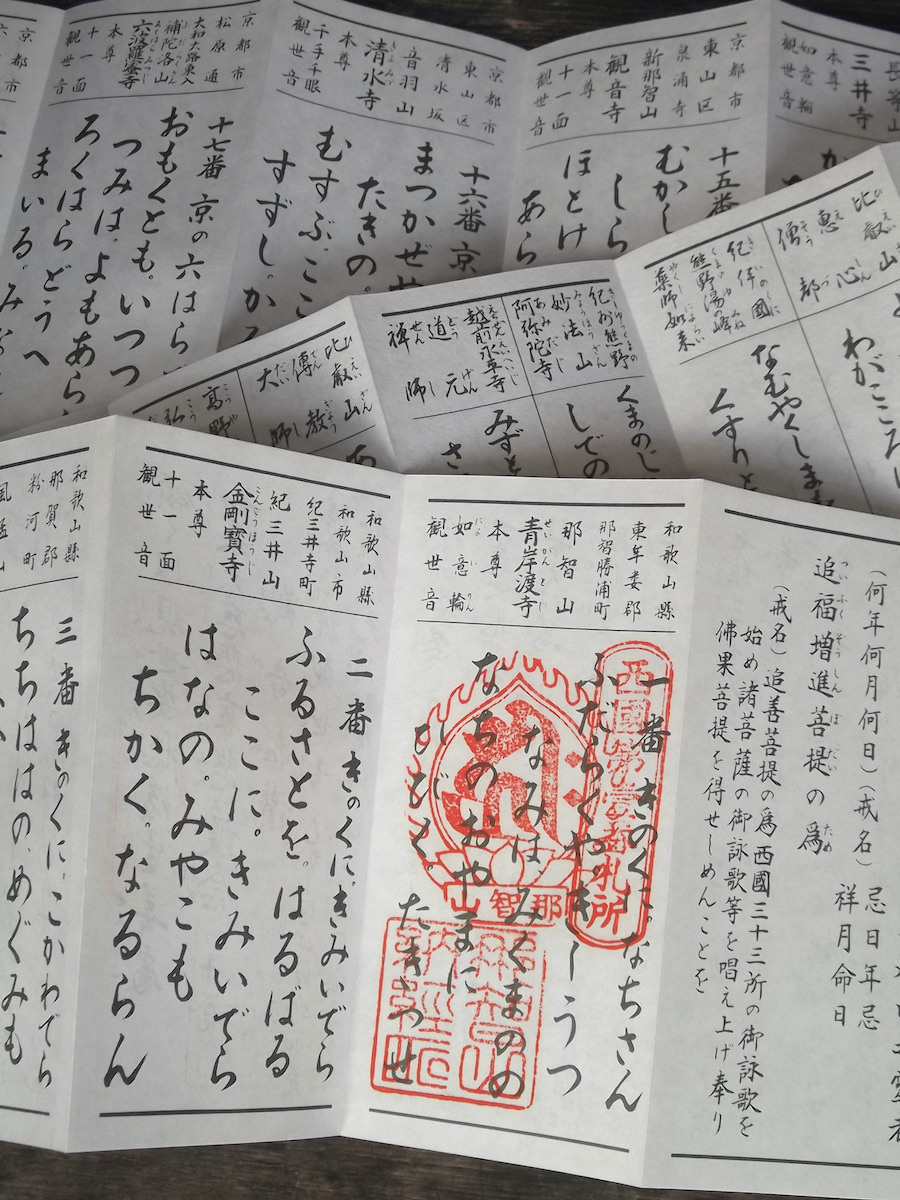 (何年何月何日)(戒名)忌日年忌
祥月命日
追福増進菩提の為
(戒名)追善菩提の為西國三十三所の御詠歌を
始め諸菩薩の御詠歌等を唱え上げ奉り
佛果菩提を得せしめんことを
和歌山縣
東牟婁郡
那智勝浦町
那智山
青岸渡寺
本尊
如意輪
観世音
一番 きのくに。なちさん
ふだらくや。きしうつ
なみは。みくまのの
なちのおやまに
ひびく。たきつせ
西國第壹番札所
那智山
和歌山縣
和歌山市
紀三井寺町
紀三井山
金剛寳寺
本尊
十一面
観世音
二番 きのくに。きみいでら
ふるさとを。はるばる
ここに。きみいでら
はなの。みやこも
ちかく。なるらん
和歌山縣
那賀郡
粉河町
三番 きのくに。こかわでら
ちちははの。めぐみも
比叡山
恵心
僧都
わがこころ
紀伊の國
熊野湯の峰
薬師如来
なむやくしま
くすりと
紀州熊野
妙法山
阿弥陀寺
くまのじ
しでの
越前永平寺
道元
禅師
みずと
さ
比叡山
傳教
大師
高野
弘
三井寺
本尊
如意輪
観世音
京都市
東山区
泉涌寺
新那智山
観音寺
本尊
十一面
観世音
十五番
むかし
しら
ほとけ
あら
京都市
東山区
清水坂
音羽山
清水寺
本尊
千手千眼
観世音
十六番 京
まつかぜや
たきの。
むすぶ。ここ
すずし。か
京都市
松原通
大和大路東入
補陀洛山
六波羅蜜寺
本尊
十一面
観世音
十七番 京の六はら
おもくとも。いつつ
つみは。よもあら
ろくはらどうへ
まいる。みな
京都市